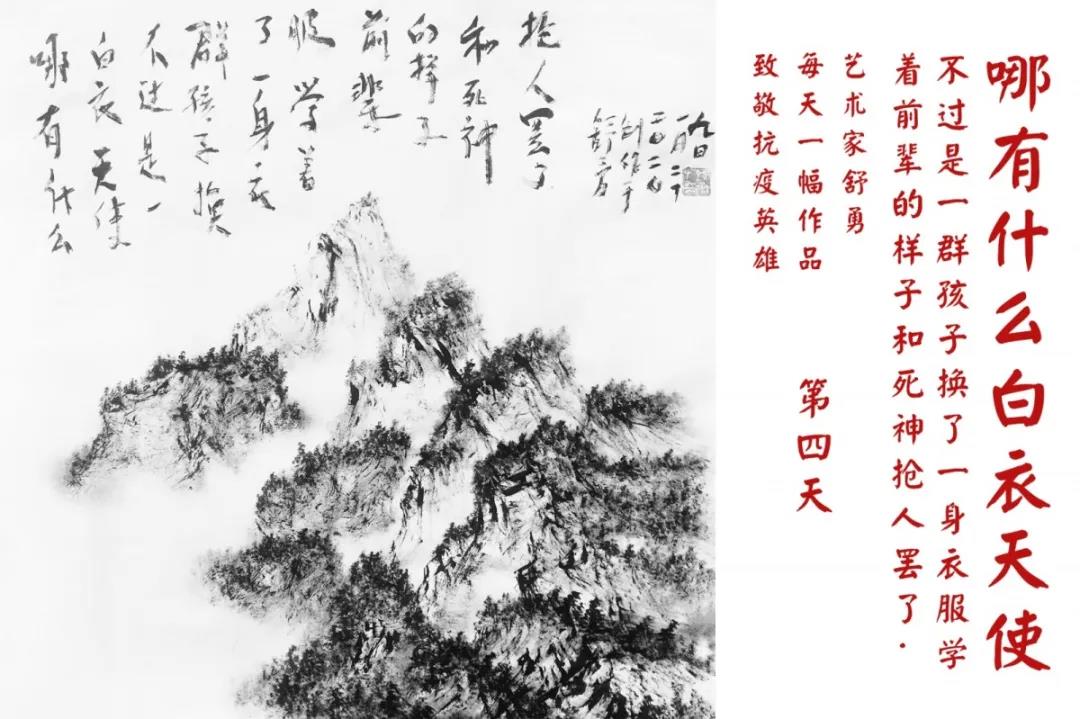 哪有什么
白衣天使
不过是一
群孩子换
了一身衣
服学着
前辈
的样子
和死神
抢人罢了
舒勇
创作于
一月二十
九日
哪有什么白衣天使
不过是一群孩子换了一身衣服学
着前辈的样子和死神抢人罢了.
艺术家舒勇
每天一幅作品
致敬抗疫英雄
第四天